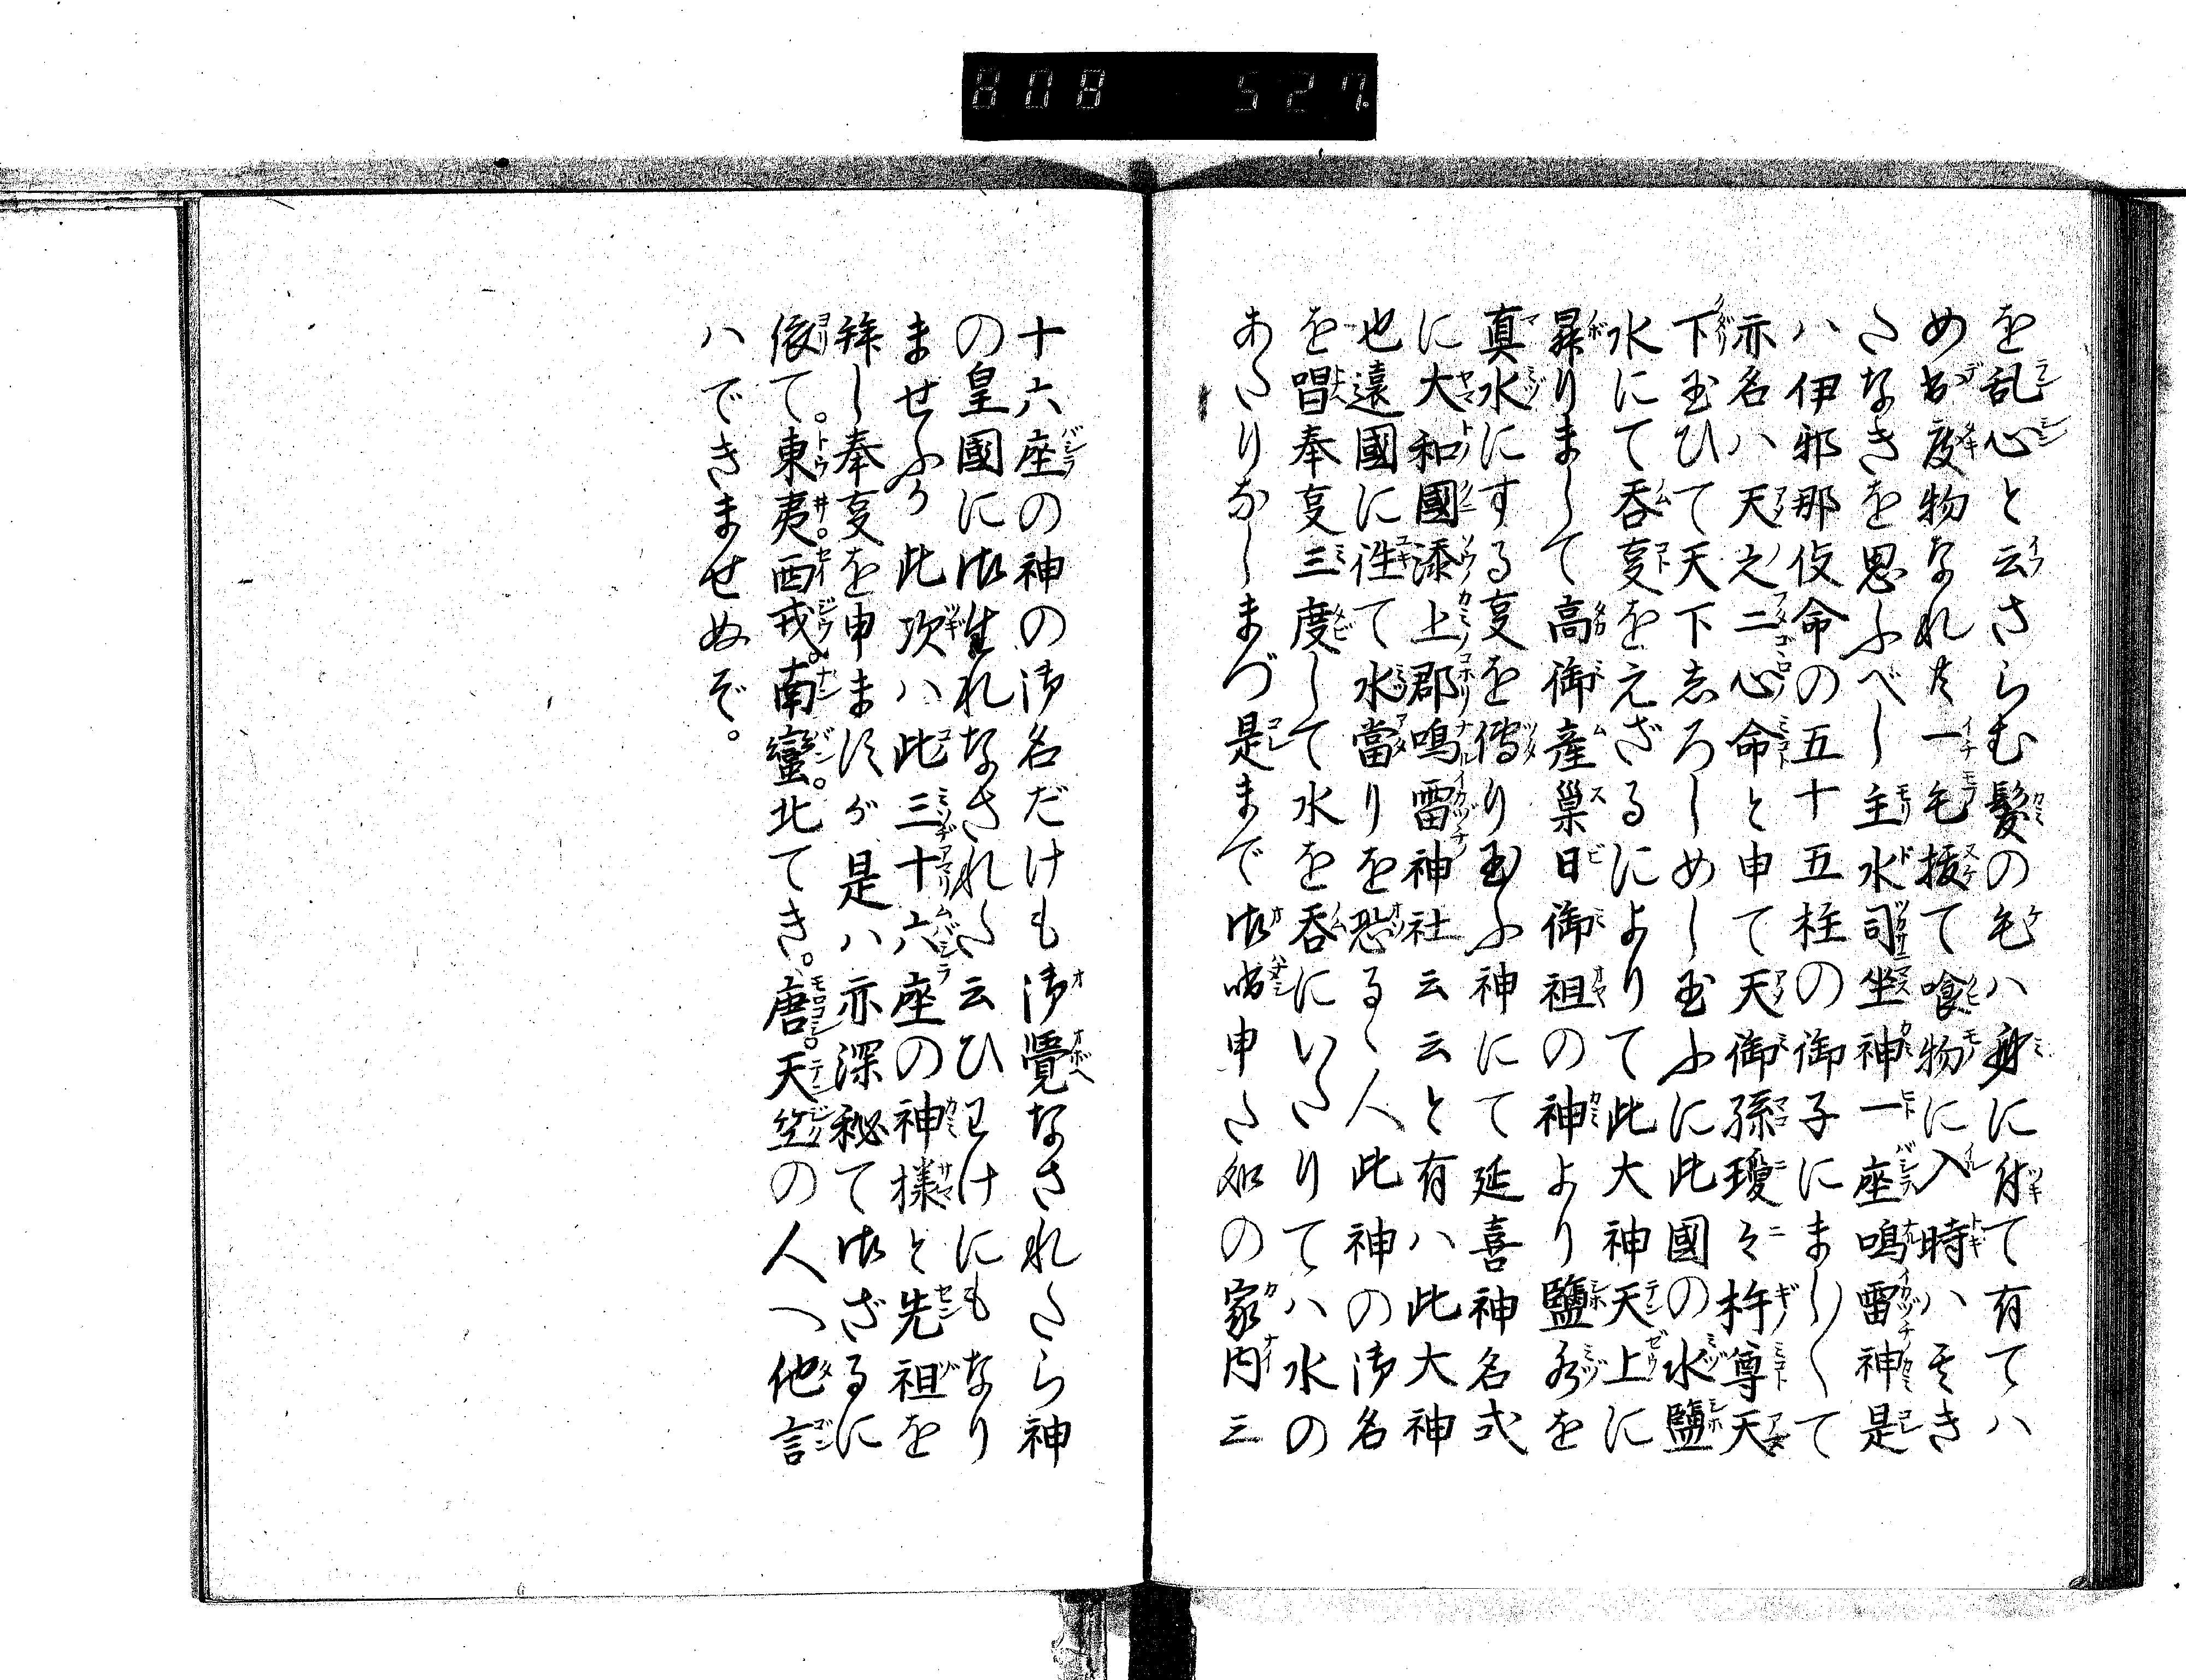 808 527
を乱心と云さらむ髪の毛ハ身に付て有てハ
めお度物なれ共一毛抜て喰物に入時ハきき
たなきを思ふべし主水司坐神一座鳴雷神是
ハ伊邪那伎命の五十五柱の御子にまし〳〵て
亦名ハ天之二心命と申て天御孫瓊々杵尊天
下玉ひて天下志ろしめし玉ふに此國の水鹽
水にて呑㕝をえざるによりて此大神天上に
昇りまして高御産巣日御祖の神より鹽水を
真水にする㕝を傳り玉ふ神にて延喜神名式
に大和國添上郡鳴雷神社云云と有ハ此大神
也遠國に徃て水當りを恐るゝ人此神の御名
を唱奉㕝三度して水を呑にいたりてハ水の
あたりなしまづ是まで御咄申た処の家内三
十六座の神の御名だけも御覺なされたら神
の皇國に御生れなされた云ひわけにもなり
ませふ此次ハ此三十六座の神様と先祖を
拜し奉㕝を申ますが是ハ亦深秘て御ざるに
依て。東夷。西戎。南蠻。北てき。唐。天竺の人へ他言
ハできませぬぞ。